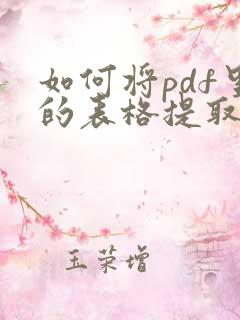 如何将pdf里
的表格提取
王荣增